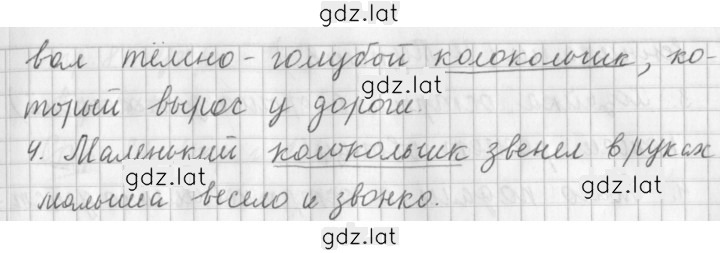 gdz.lat
вал тёмно-голубой колокольчик, ко-
gdz.lat
торый вырос у дороги.
gdz.lat
4. Маленький колокольчик звенел в руках
gdz.lat
gdz.lat
малыша весело и звонко.
gdz.lat